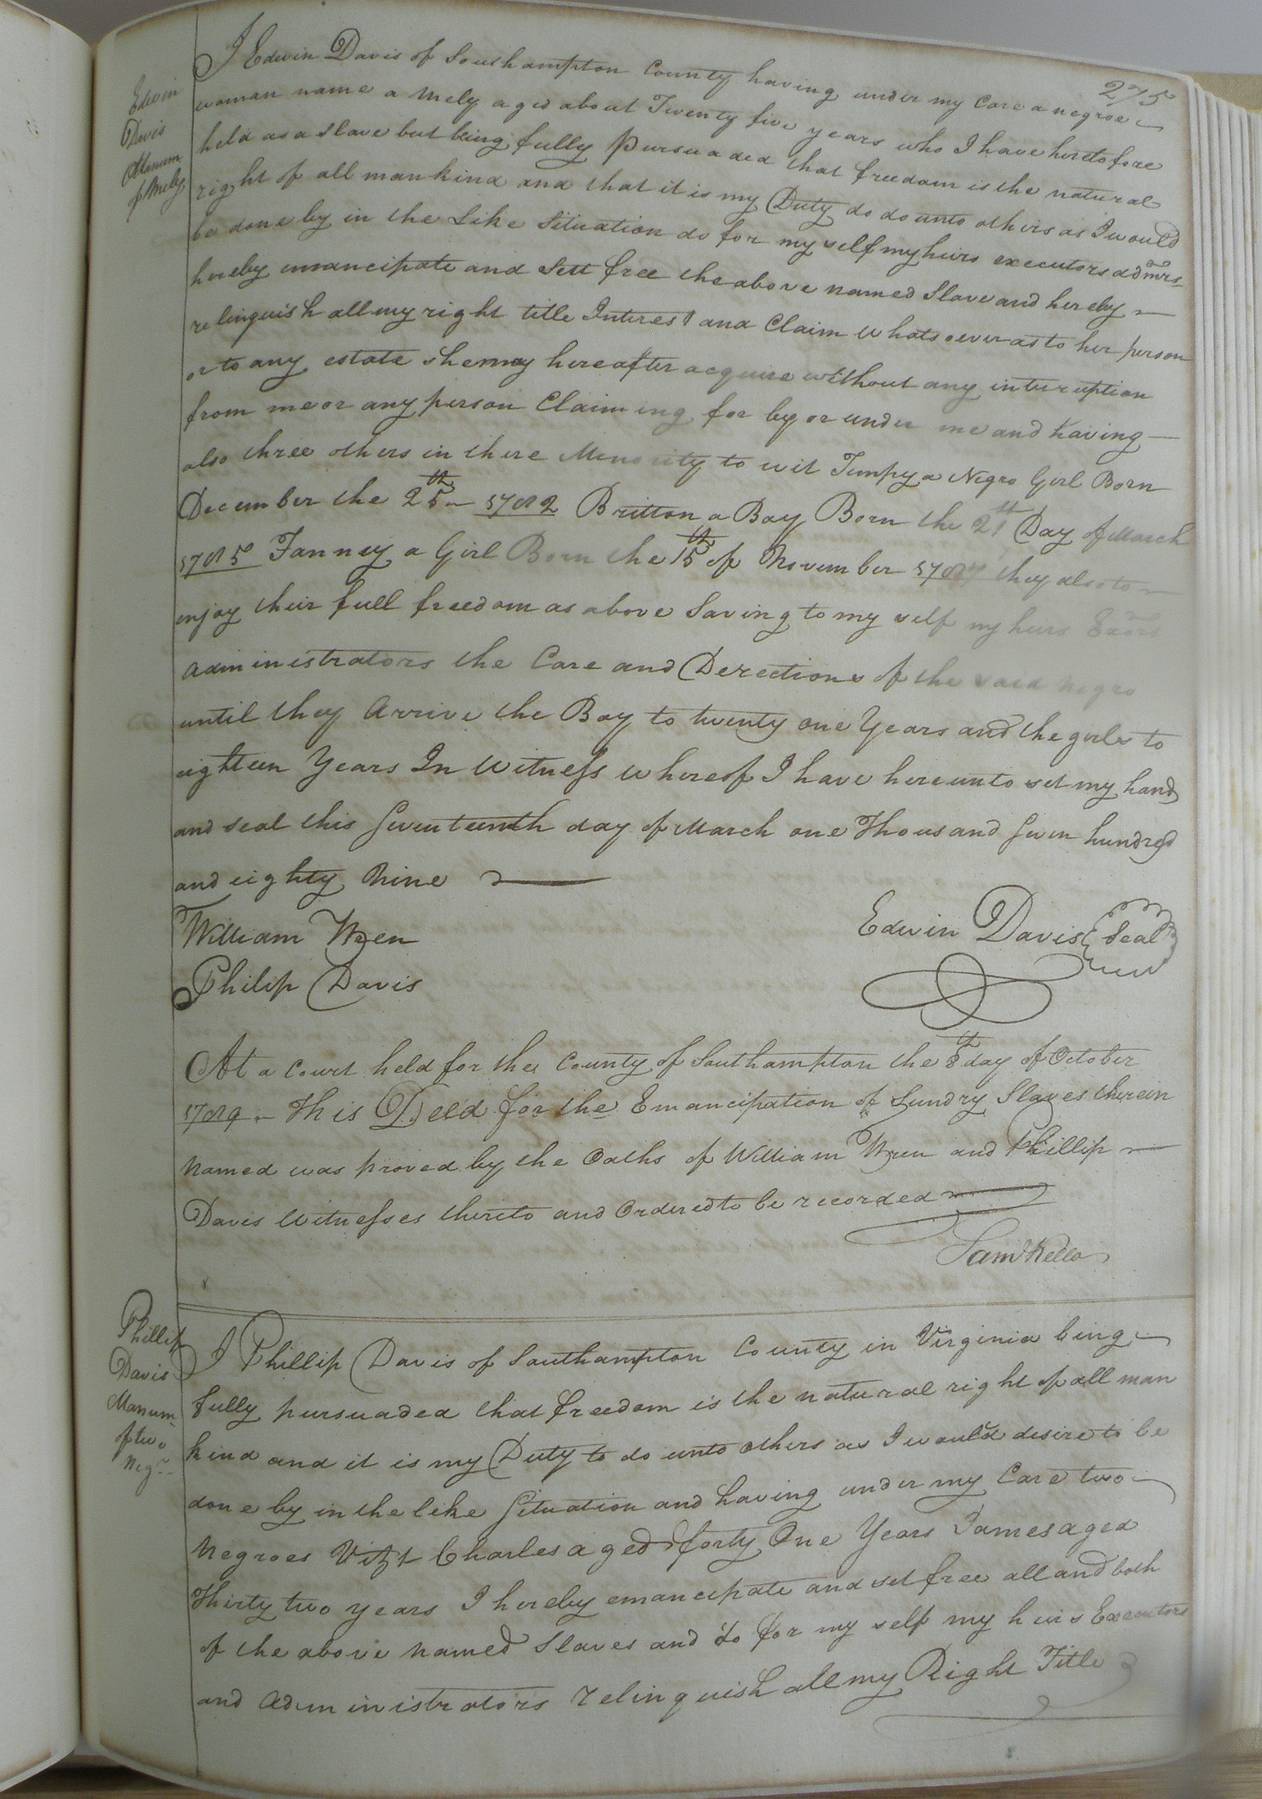 275
Edwin
Davis
Manum
of Mely
I Edwin Davis of Southampton County having under my Care a negroe
woman name a Mely aged about Twenty five years who I have heretofore
held as a slave but being fully Pursuaded that freedom is the natural
right of all mankind and that it is my Duty do do unto others as I would
be done by in the Like Situation do for my self my heirs executors admrs
hereby emancipate and Sett free the above named Slave and hereby
relinquish all my right title Interest and Claim whatsoever as to her person
or to any estate she may hereafter acquire without any interuption
from me or any person Claiming for by or under me and having
also three others in there Minority to wit Tempy a Negro Girl Born
December the 25th 1782 Britton a Boy Born the 21th Day of March
1785 Fanney a Girl Born the 15th of November 1787 they also to
enjoy their full freedom as above Saving to my self my heirs Exors
Administrators the Care and Derections of the said negro
until they Arrive the Boy to twenty one Years and the girls to
eighteen Years In Witness whereof I have hereunto set my hand
and seal this Seventeenth day of March one Thousand Seven hundred
and eighty Nine
William Wren
Edwin Davis Seal
Philip Davis
At a Court held for the County of Southampton the 8th day of October
1789 - This Deed for the Emancipation of Sundry Slaves therein
Named was proved by the Oaths of William Wren and Phillip
Davis Witnesses thereto and Ordered to be recorded
Saml Kello
Phillip
Davis
Manum
of two
Negs
I Phillip Davis of Southampton County in Virginia being
fully pursuaded that freedom is the natural right of all man
kind and it is my Duty to do unto others as I would desire to be
done by in the like Situation and having under my Care two
Negroes Vizt Charles aged forty One Years James aged
Thirty two years I hereby emancipate and set free all and both
of the above named Slaves and do for my self my heirs Executors
and Administrators relinquish all my Right Title